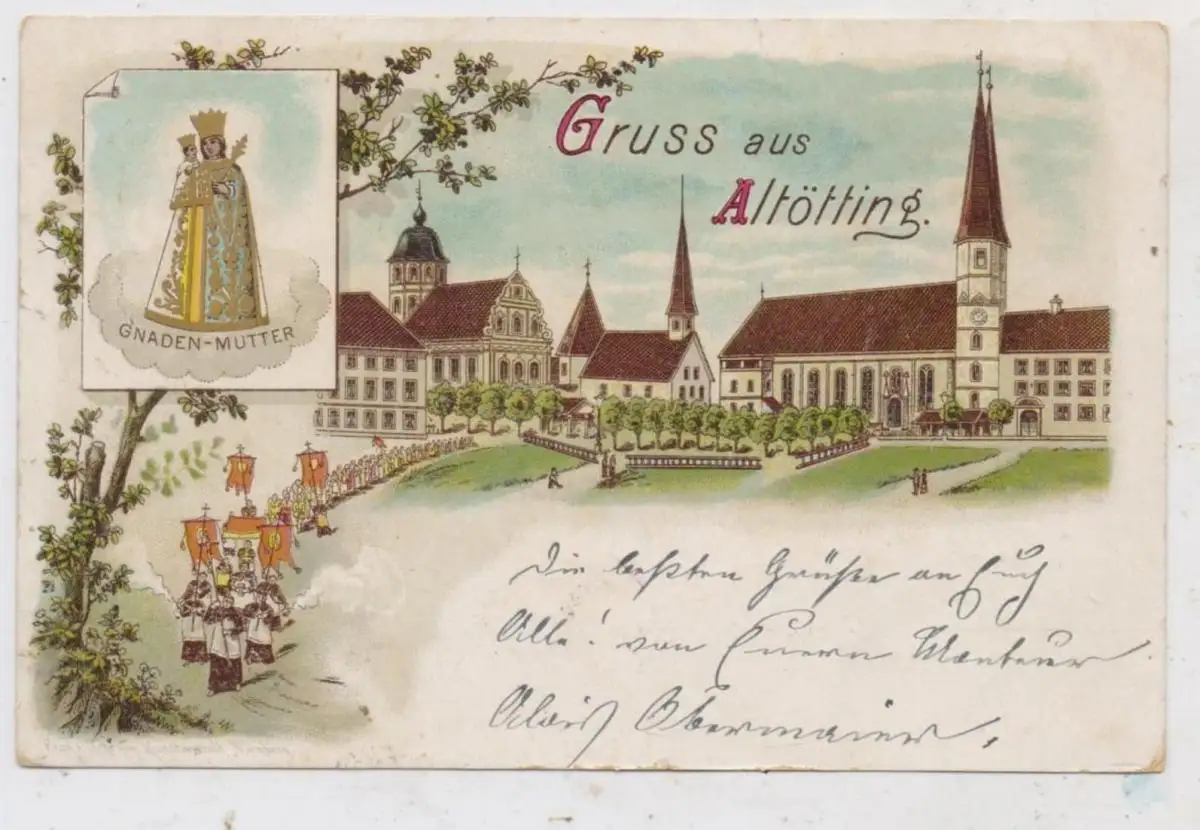 Gruss aus
Altötting.
G'NADEN-MUTTER
Die beßten Grüße an Euch
Alle! von Euern Monteur
Alois Obermaier.